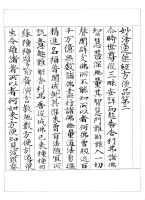 妙法蓮華經方便品第二
尒時世尊從三昧安詳而起告舍利弗諸佛
智慧甚深無量其智慧門難解難入一切
聲聞辟支佛所不能知所以者何佛曾親近百
千萬億無數諸佛盡行諸佛無量道法勇猛
精進名稱普聞成就甚深未曾有法隨宜所
說意趣難解舍利弗吾從成佛已來種種因
緣種種譬喻廣演言教無數方便引導衆
生令離諸著所以者何如來方便知見波羅蜜